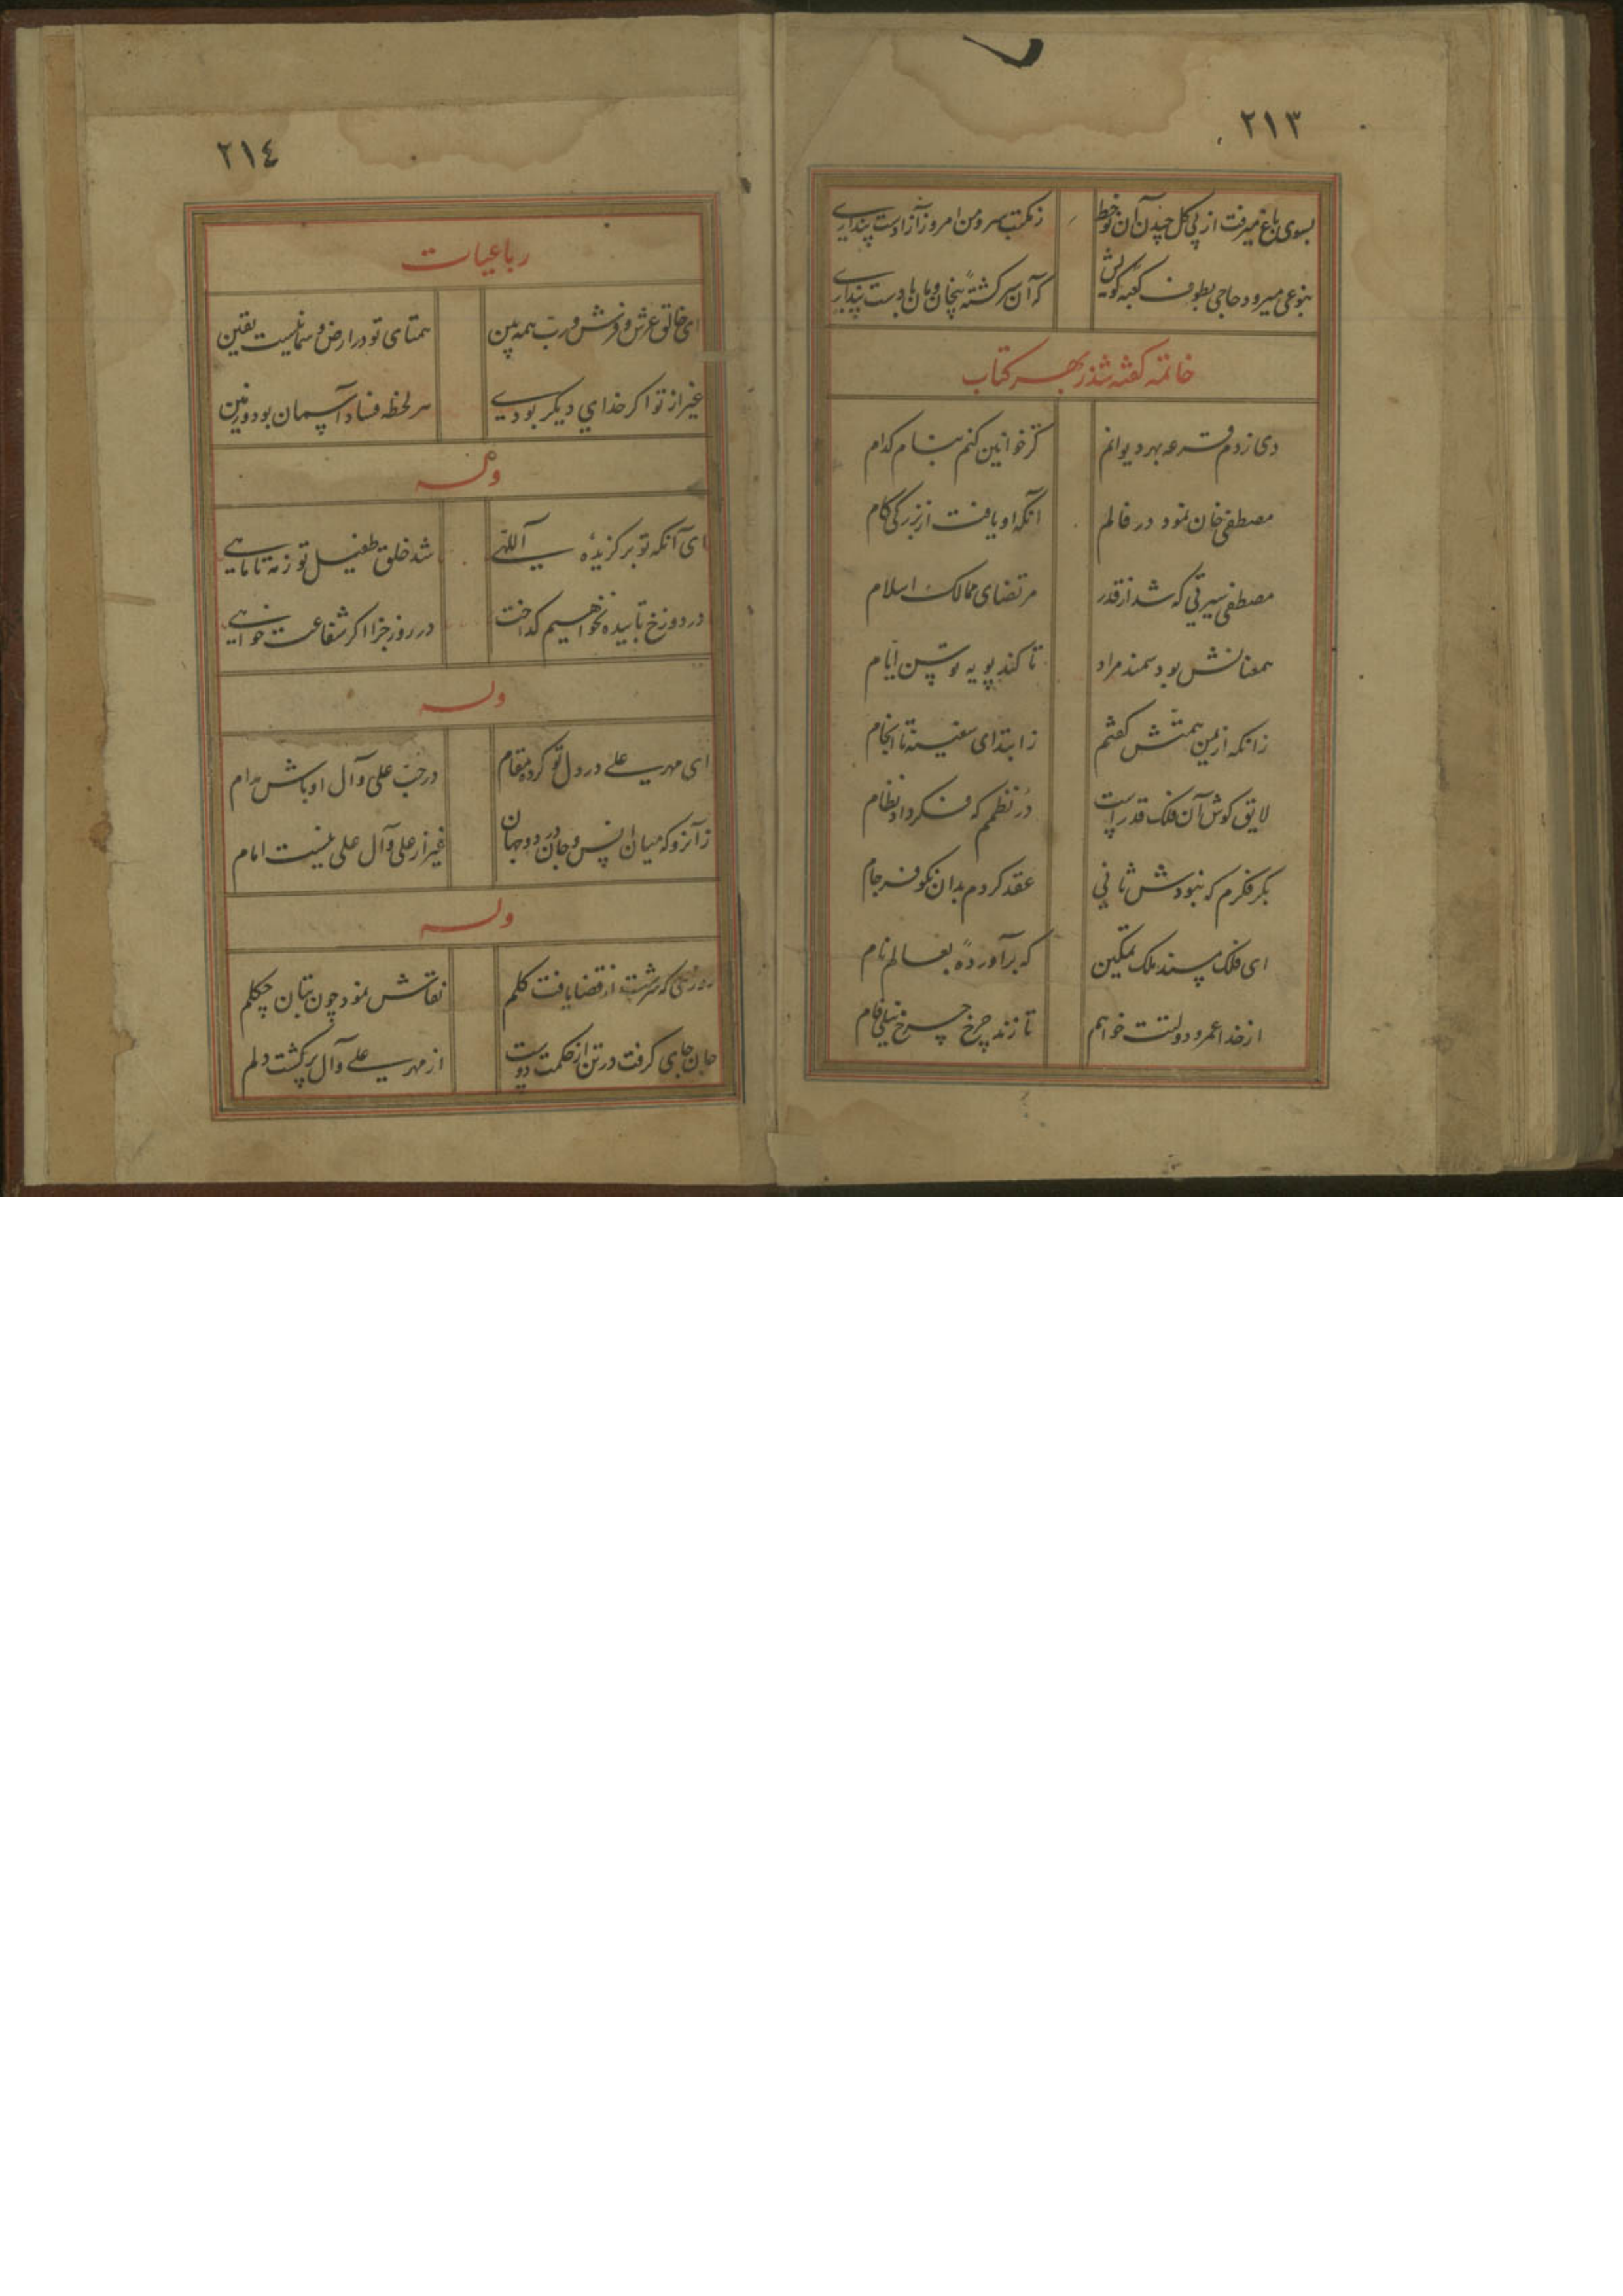 ۲۱۳
بسوی باغ میرفت از پی گل چیدن آن نوخط زمکتب سرو من امروز آزادست پنداری
بنوعی میرود حاجی بطوف کعبه کویش که آن سرکشته بیخان و مان بادست پنداری
خاتمه کفته شد زبهر کتاب
دی زدم قرعه بهر دیوانم کز خوانین کنم بنام کدام
مصطفی خان نمود در فالم آنکه او یافت از بزرکی کام
مصطفی سیرتی که شد از قدر مرتضای ممالک اسلام
همعنانش بود سمند مراد تا کند پویه توسن ایام
زانکه از یمن همتش کفتم ز ابتدای سفینه تا انجام
لایق کوش آن فلک قدر است در نظمم که فکر داد نظام
بکر فکرم که نبودش ثانی عقد کردم بدان نکو فرجام
ای فلک مسند ملک تمکین که برآورده بعالم نام
از خدا عمر و دولتت خواهم تا زند چرخ چرخ نیلی فام
۲۱٤
رباعیات
ای خالق عرش و فرش و رب همه بین همتای تو در ارض و سما نیست یقین
غیر از تو اکر خدای دیکر بودی هر لحظه فساد آسمان بود و زمین
وله
ای آنکه تو برکزیده اللهی شد خلق طفیل تو زمه تا ماهی
در دوزخ تابیده نخواهیم کداخت در روز جزا اکر شفاعت خواهی
وله
ای مهر علی در دل تو کرده مقام در حب علی و آل او باش مدام
زآنرو که میان انس و جان در دو جهان غیر از علی و آل علی نیست امام
وله
روزی که سرشت از قضا یافت کلم نقاش نمود چون بتان چکلم
جان جای کرفت در تن از حکمت دوست از مهر علی و آل پر کشت دلم